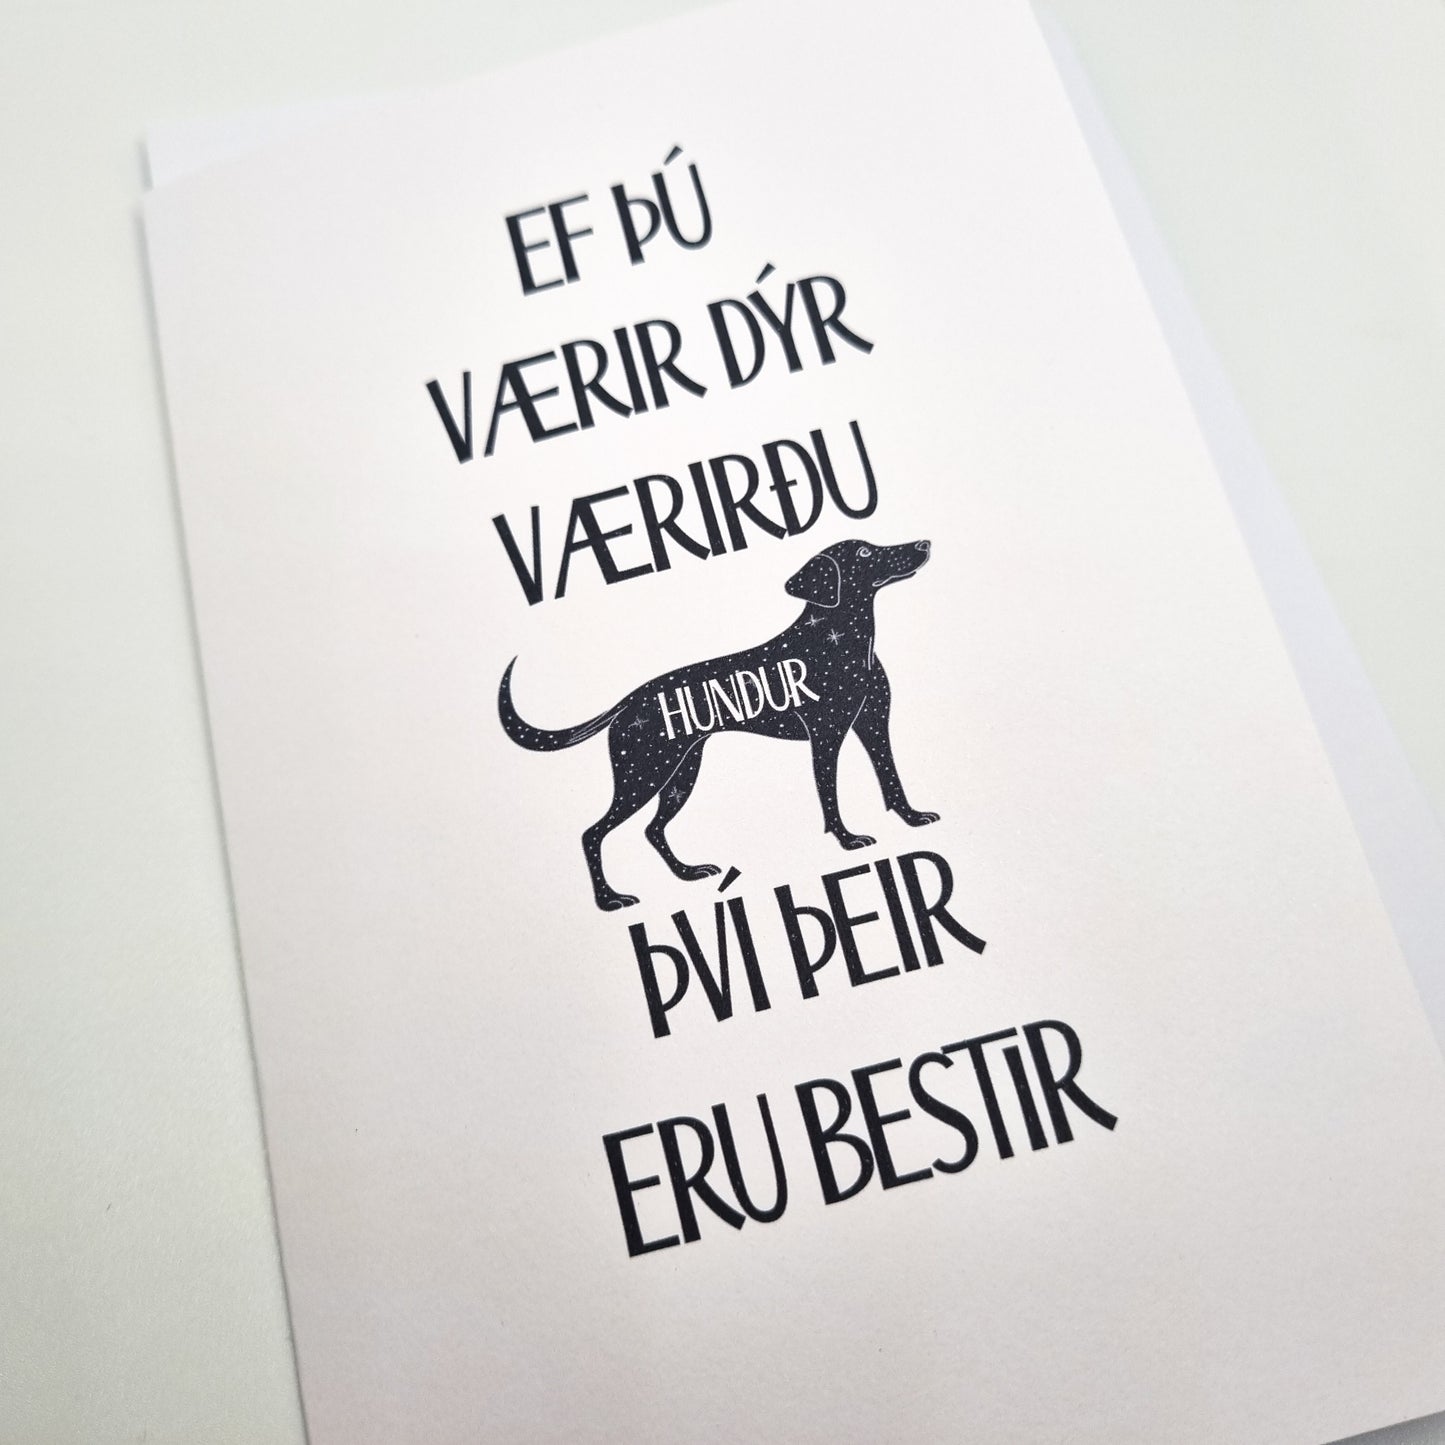 EF ÞÚ
VÆRIR DÝR
VÆRIRÐU
HUNDUR
ÞVÍ ÞEIR
ERU BESTIR